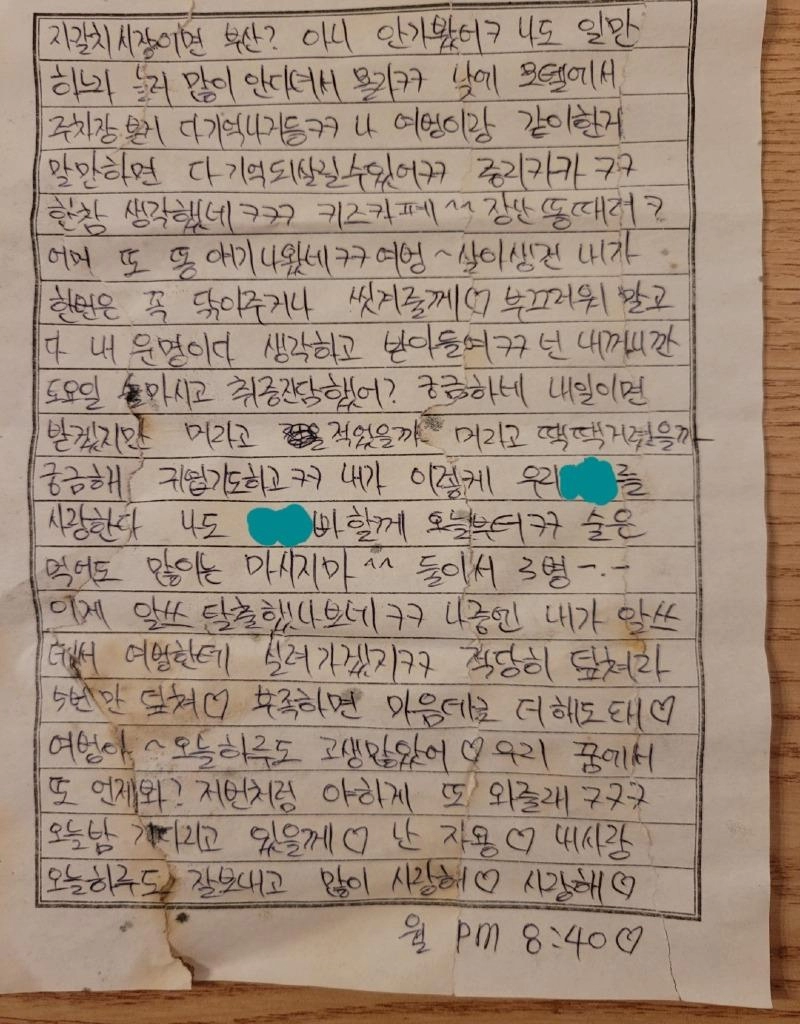 자갈치시장이면 부산? 아니 안가봤어ㅋ 나도 일만
하느라 놀러 많이 안다녀서 몰라ㅋㅋ 낮에 모텔에서
주차장 본거 다기억나거등ㅋㅋ 나 여벙이랑 같이한거
말만하면 다 기억되살릴수있어ㅋㅋ 종리카카 ㅋㅋ
한참 생각했네ㅋㅋㅋ 키즈카페^^ 장난 똥때려?
어머 또 똥 얘기나왔네ㅋㅋ여벙~살아생전 내가
한번은 꼭 닦아주거나 씻겨줄께♡ 부끄러워 말고
다 내 운명이다 생각하고 받아들여ㅋㅋ 넌 내꺼니깐
토요일 술마시고 취중진담했어? 궁금하네 내일이면
받겠지만 머라고 적었을까 머라고 떽떽거렸을까
궁금해 귀엽기도하고ㅋㅋ 내가 이렇케 우리 를
사랑한다 나도 바 할께 오늘부터ㅋㅋ 술은
먹어도 많이는 마시지마^^ 둘이서 3병-.-
이제 알쓰 탈출했나보네ㅋㅋ 나중엔 내가 알쓰
되서 여벙한테 실려가겠지ㅋㅋ 적당히 덮쳐라
5번만 덮쳐♡ 부족하면 마음데로 더해도 돼♡
여벙아~오늘하루도 고생많았어♡우리 꿈에서
또 언제와? 저번처럼 야하게 또 와줄래ㅋㅋㅋ
오늘밤 기다리고 있을께♡ 난 자용♡ 내사랑
오늘하루도 잘보내고 많이 사랑해♡ 사랑해♡
월 PM 8:40♡